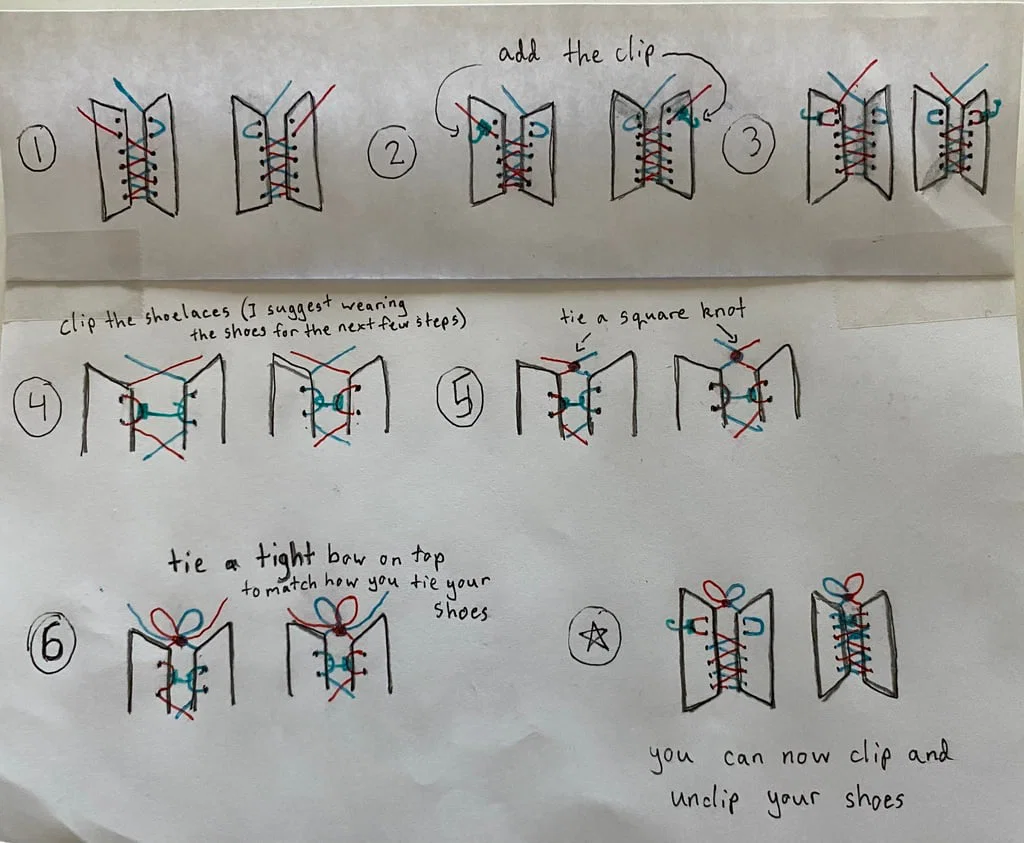 add the clip
1
2
3
clip the shoelaces (I suggest wearing
the shoes for the next few steps)
tie a square knot
4
5
tie a tight bow on top
to match how you tie your
shoes
6
you can now clip and
unclip your shoes